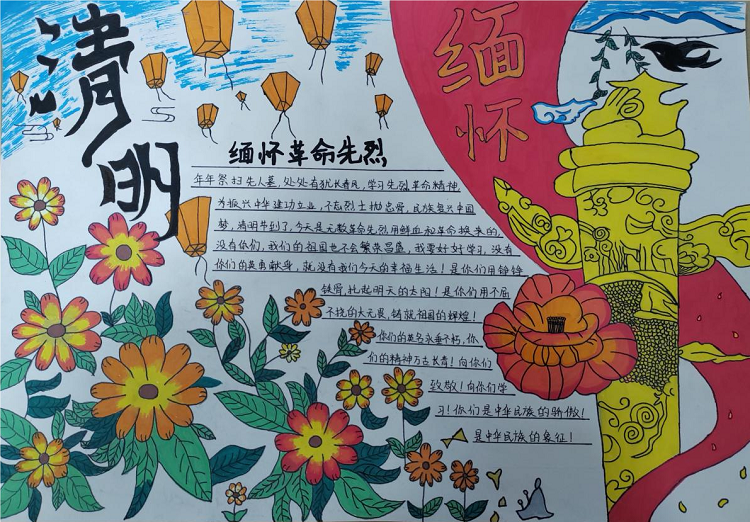 清明
缅怀
缅怀革命先烈
年年祭扫先人墓,处处有犹长春民,学习先烈革命精神,
为振兴中华建功立业,不忘烈士抛忠骨,民族复兴中国
梦,清明节到了,今天是无数革命先烈用鲜血和革命换来的,
没有你们,我们的祖国也不会繁荣昌盛,我要好好学习,没有
你们的英勇献身,就没有我们今天的幸福生活!是你们用铮铮
铁骨,托起明天的太阳!是你们用不屈
不挠的大无畏,铸就祖国的辉煌!
你们的英名永垂不朽,你
们的精神万古长青!向你们
致敬!向你们学
习!你们是中华民族的骄傲!
是中华民族的象征!